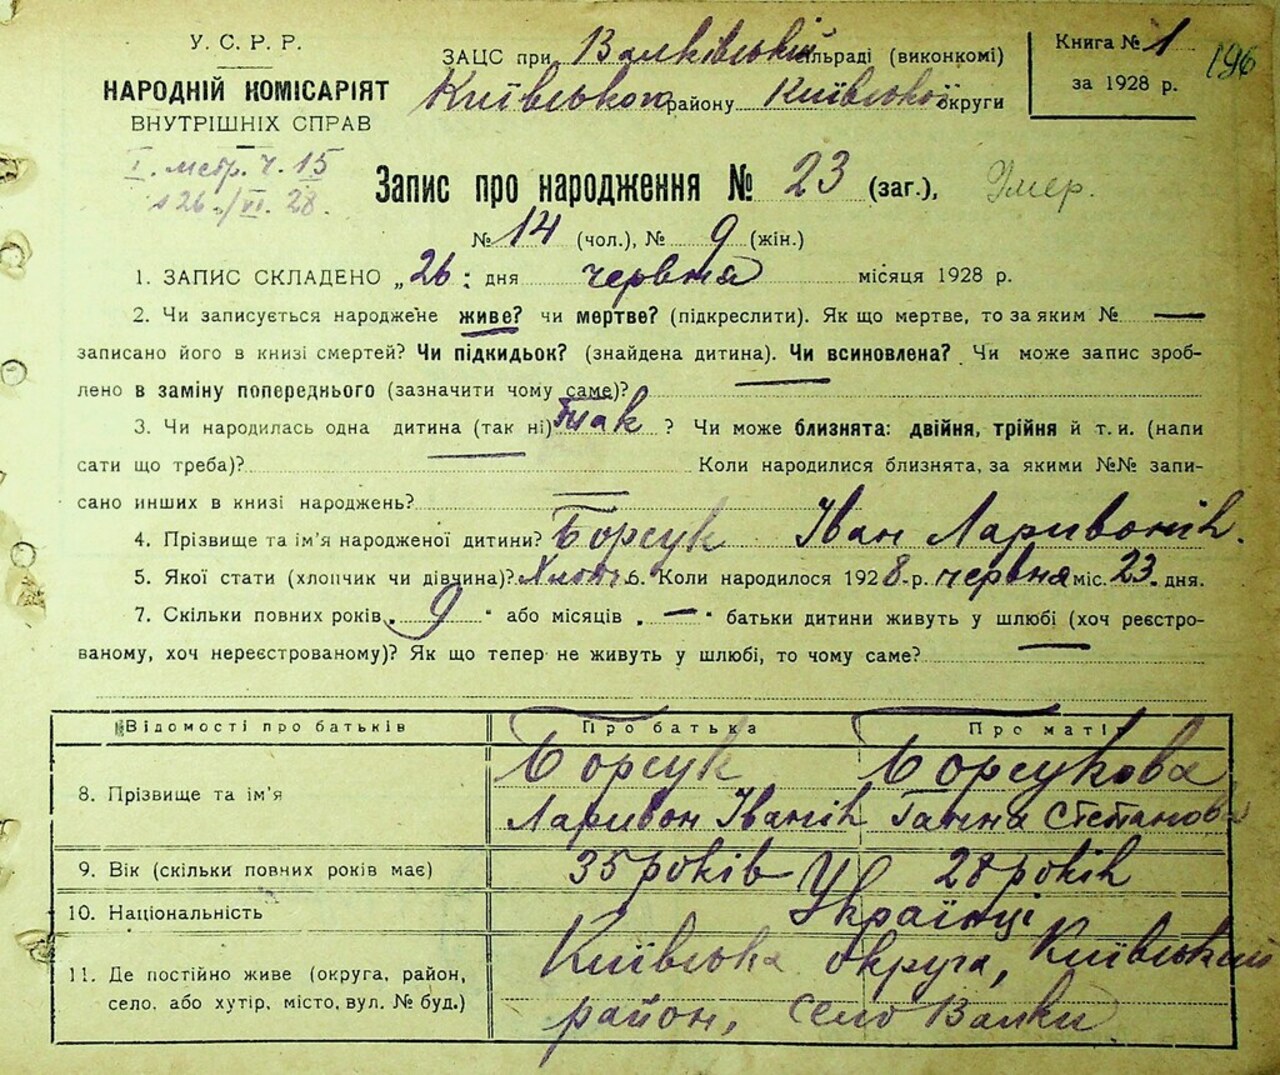 У. С. Р. Р.
НАРОДНІЙ КОМІСАРІЯТ
ВНУТРІШНІХ СПРАВ
І. метр. ч. 15
з 26./VI. 28.
ЗАЦС при Валківській сільраді (виконкомі)
Київського району Київської округи
Книга № 1
за 1928 р.
196
Запис про народження № 23 (заг.), Умер.
№ 14 (чол.), № 9 (жін.)
1. ЗАПИС СКЛАДЕНО „26" дня червня місяця 1928 р.
2. Чи записується народжене живе? чи мертве? (підкреслити). Як що мертве, то за яким № —
записано його в книзі смертей? Чи підкидьок? (знайдена дитина). Чи всиновлена? Чи може запис зроб-
лено в заміну попереднього (зазначити чому саме)?
3. Чи народилась одна дитина (так ні) так ? Чи може близнята: двійня, трійня й т. и. (напи
сати що треба)? Коли народилися близнята, за якими №№ запи-
сано инших в книзі народжень?
4. Прізвище та ім'я народженої дитини? Борсук Іван Ларивоніч.
5. Якої стати (хлопчик чи дівчина)? Хлопч. 6. Коли народилося 1928 р. червня міс. 23. дня.
7. Скільки повних років „ 9 " або місяців „ — " батьки дитини живуть у шлюбі (хоч реєстро-
ваному, хоч нереєстрованому)? Як що тепер не живуть у шлюбі, то чому саме?
Відомості про батьків Про батька Про матір
8. Прізвище та ім'я Борсук Борсукова
Ларивон Іваніч Ганна Степанова
9. Вік (скільки повних років має) 35 років 28 років
10. Національність Українці
11. Де постійно живе (округа, район,
село, або хутір, місто, вул. № буд.)
Київська округа, Київський
район, село Валки